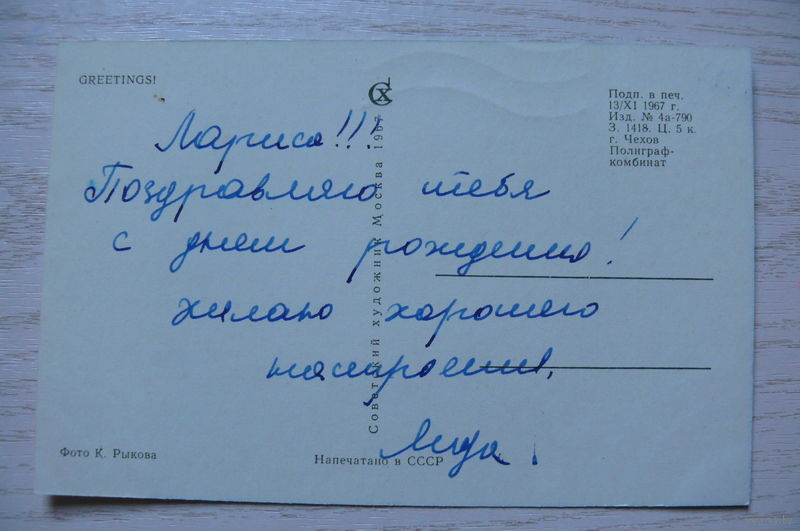 GREETINGS!
Лариса!!!
Поздравляю тебя
с днем рождения!
желаю хорошего
настроения,
Лида.
Советский художник Москва 1967
Подп. в печ.
13/XI 1967 г.
Изд. № 4а-790
З. 1418. Ц. 5 к.
г. Чехов
Полиграф-
комбинат
Фото К. Рыкова
Напечатано в СССР